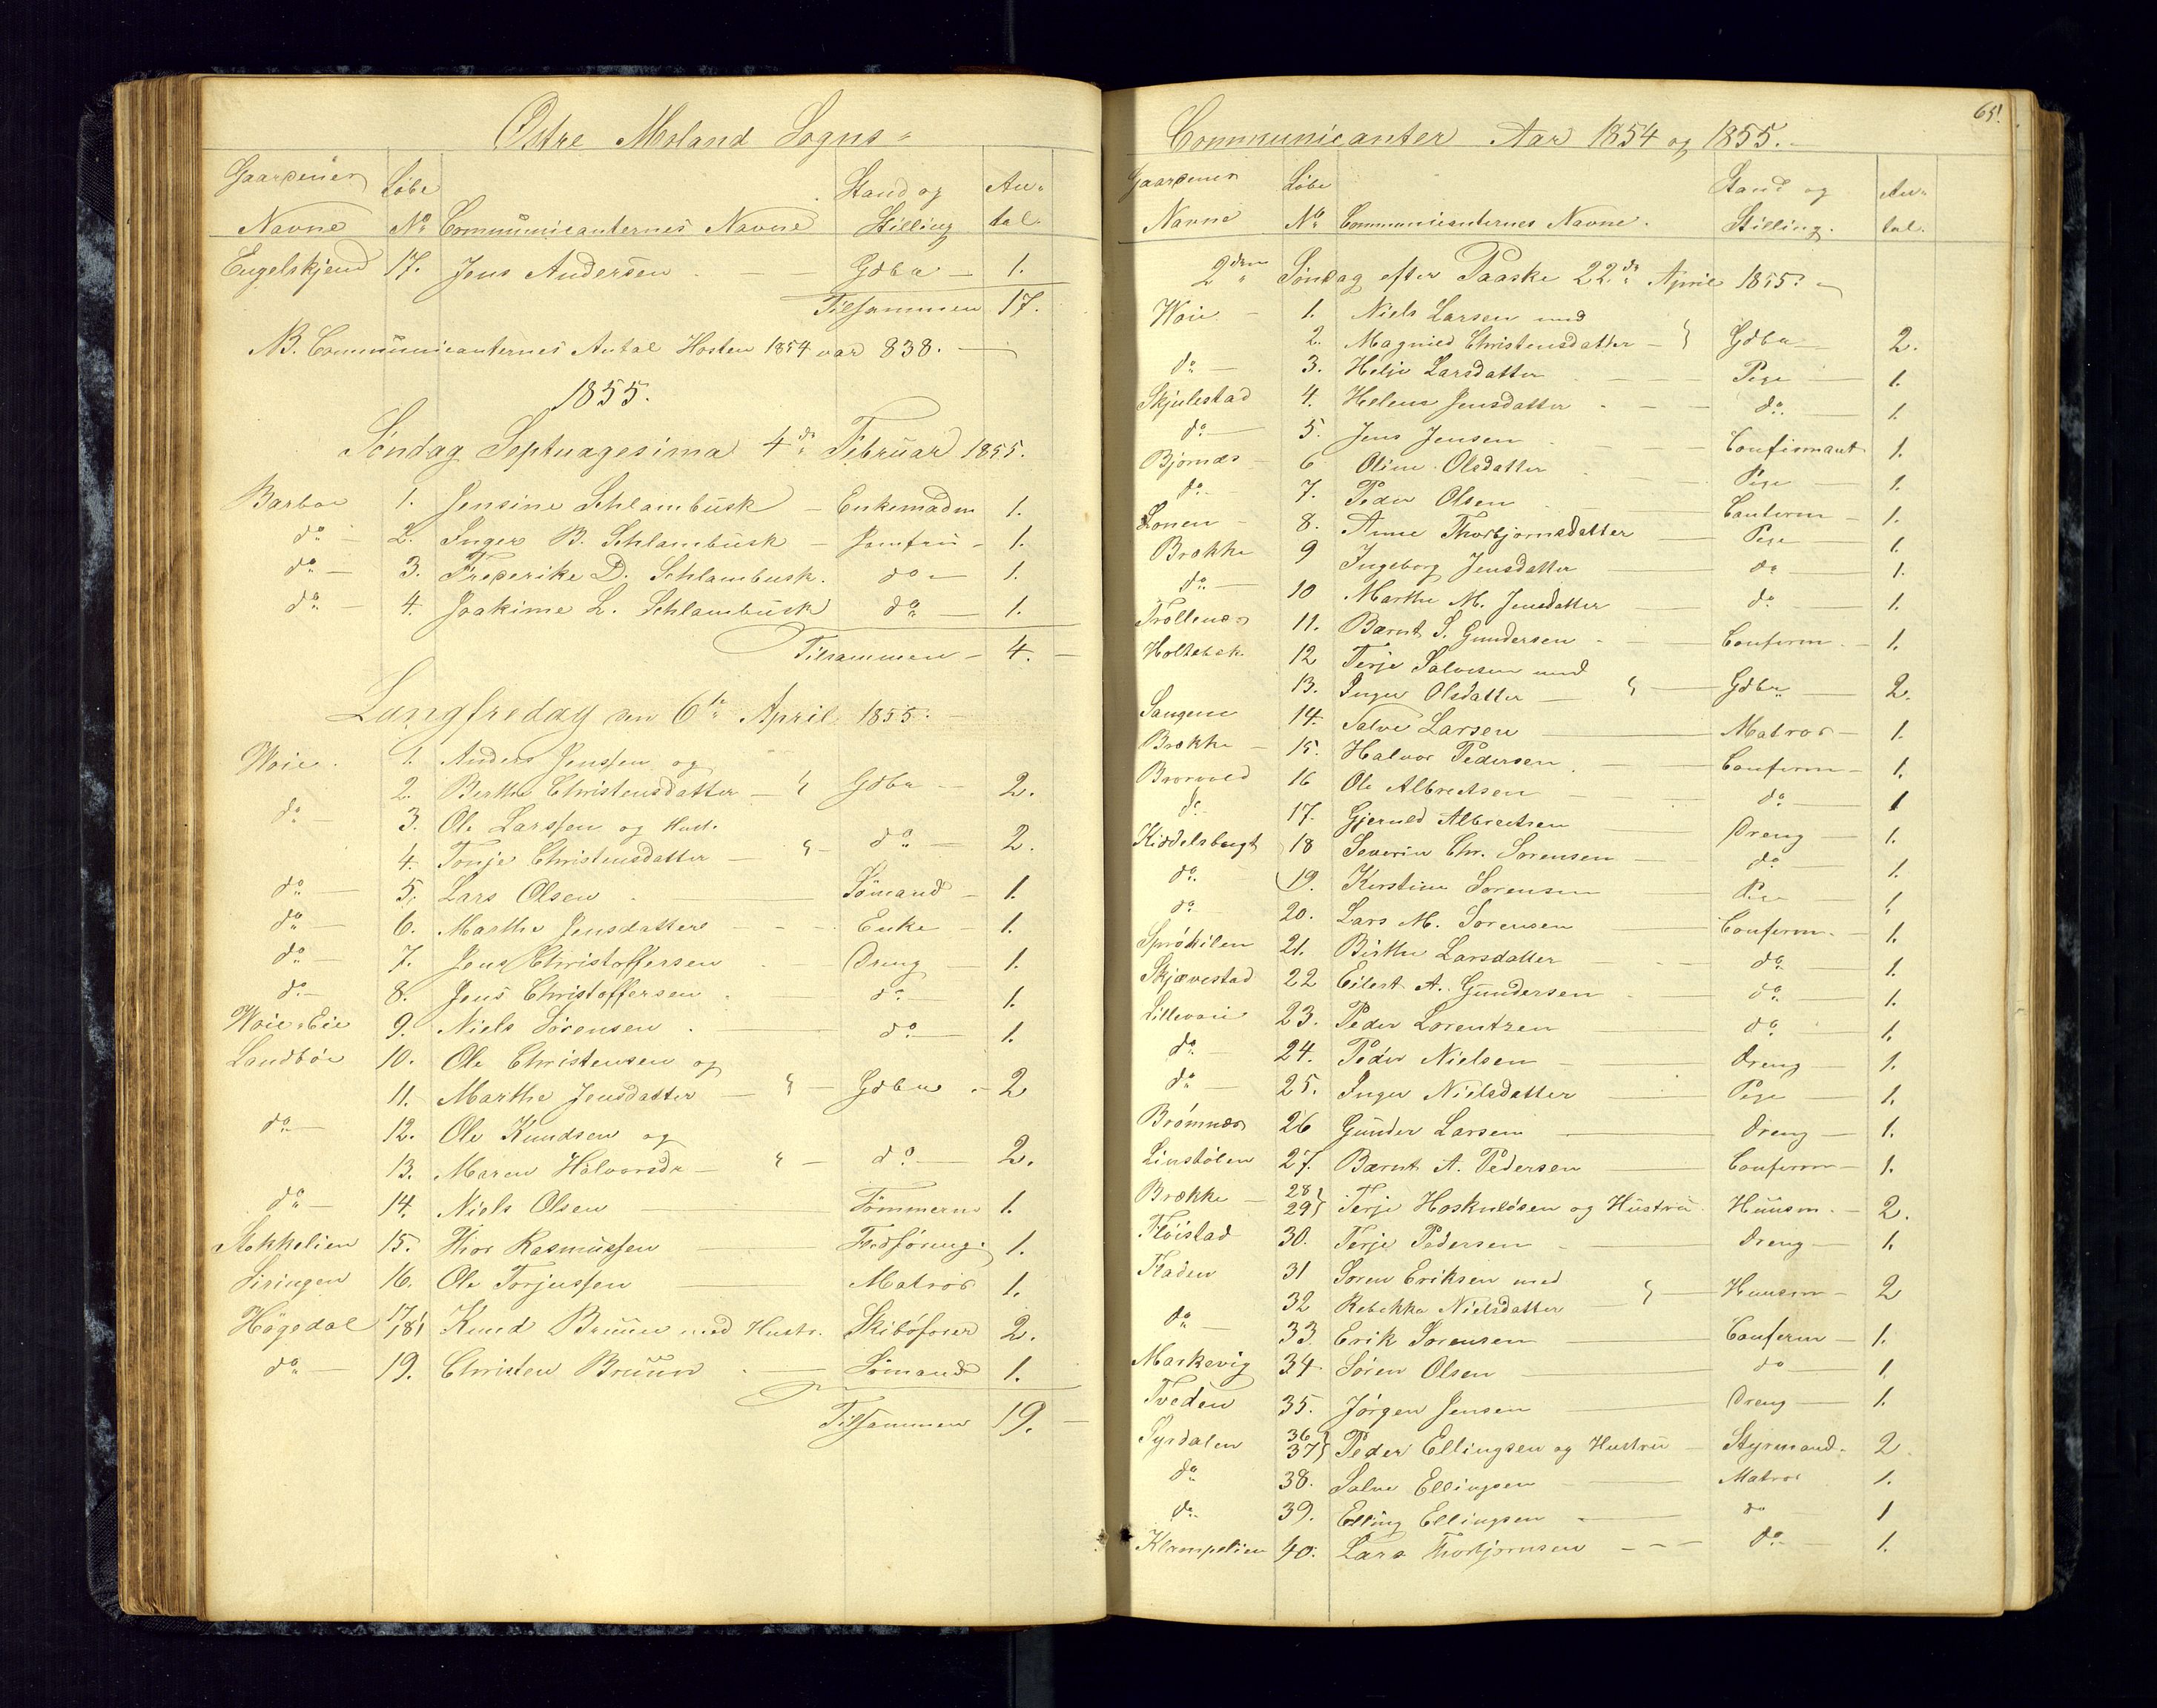 Østre Moland Sogns-
Gaardenes Løbe Stand og An-
Navne No Communicanternes Navne Stilling tal.
Engelskjend 17. Jens Andersen Gdbr 1.
Tilsammen 17.
NB. Communicanternes Antal Høsten 1854 var 838.
1855.
Søndag Septuagesima 4de Februar 1855.
Barboe 1. Jensine Schlambusk Enkemadm 1.
do 2. Inger B. Schlambusk Jomfru 1.
do 3. Frederike D. Schlambusk. do 1.
do 4. Joakime L. Schlambusk do 1.
Tilsammen 4.
Langfredag den 6te April 1855.
Woie. 1. Anders Jenssen og
2. Berthe Christensdatter Gdbr 2.
do 3. Ole Larssen og Hust.
4. Tonje Christensdatter do 2.
do 5. Lars Olsen Sömand 1.
do 6. Marthe Jensdatter Enke 1.
do 7. Jens Christoffersen Dreng 1.
do 8. Jens Christoffersen do 1.
Woie Eie 9. Niels Sörensen do 1.
Landböe 10. Ole Christensen og
11. Marthe Jensdatter Gdbr 2
do 12. Ole Knudsen og
13. Maren Halvorsdr do 2.
do 14. Niels Olsen Tömmerm 1.
Stokkelien 15. Thor Rasmussen 1.
Siringen 16. Ole Torjussen Matros 1.
Högedal 17. 18 Knud Bruun med Hustr. Skibsförer 2.
do 19. Christen Bruun Sömand 1.
Tilsammen 19.
65.
Communicanter Aar 1854 og 1855.
Gaardenes Løbe Stand og An-
Navne No Communicanternes Navne. Stilling. tal.
2den Søndag efter Paaske 22de April 1855.
Woie 1. Niels Larsen med
2. Magnild Christensdatter Gdbr 2.
do 3. Helje Larsdatter Pige 1.
Skjulestad 4. Helene Jensdatter do. 1.
do 5. Jens Jensen Confirmant 1.
Bjornæs 6 Oline Olsdatter Pige 1.
do 7. Peder Olsen Confirm 1.
Lonen 8. Anne Thorbjornsdatter Pige 1.
Brække 9 Ingeborg Jensdatter do 1.
do 10 Marthe M. Jensdatter do 1.
Trollenæs 11. Bærnt S. Gundersen Confirm 1.
Holtebek 12 Terje Salvesen med
13. Inger Olsdatter Gdbr 2.
Sangene 14. Salve Larsen Matros 1.
Brække 15. Halvor Pedersen Confirm 1.
16 Ole Albretsen do 1
do 17. Gjeruld Albretsen Dreng 1.
Kiddelsbugt 18 Severin Chr. Sorensen do 1.
do 19. Kirstine Sorensen Pige 1.
do 20. Lars M. Sorensen Confirm. 1.
21. Birthe Larsdatter do 1.
Skjævestad 22 Eilert A. Gundersen do 1.
Lillevoie 23. Peder Lorentzen do 1.
do 24. Peder Nielsen Dreng 1.
do 25. Inger Nielsdatter Pige 1.
Brømnæs 26 Gunder Larsen Dreng 1.
Linstölen 27. Bærnt A. Pedersen Confirm 1.
Brække 28 29 Terje Hoskuldsen og Hustru Huusm. 2.
Flöistad 30. Terje Pedersen Dreng 1.
Fladen 31 Soren Eriksen med
32 Rebekka Nielsdatter Huusm 2
do 33 Erik Sorensen Confirm 1.
Markevig 34 Sören Olsen do 1.
Tveden 35. Jörgen Jensen Dreng 1.
Syrdalen 36 37 Peder Ellingsen og Hustru Styrmand. 2.
do 38. Salve Ellingsen Matros 1.
do 39. Elling Ellingsen do 1
40. Lars Thorbjornsen do 1.